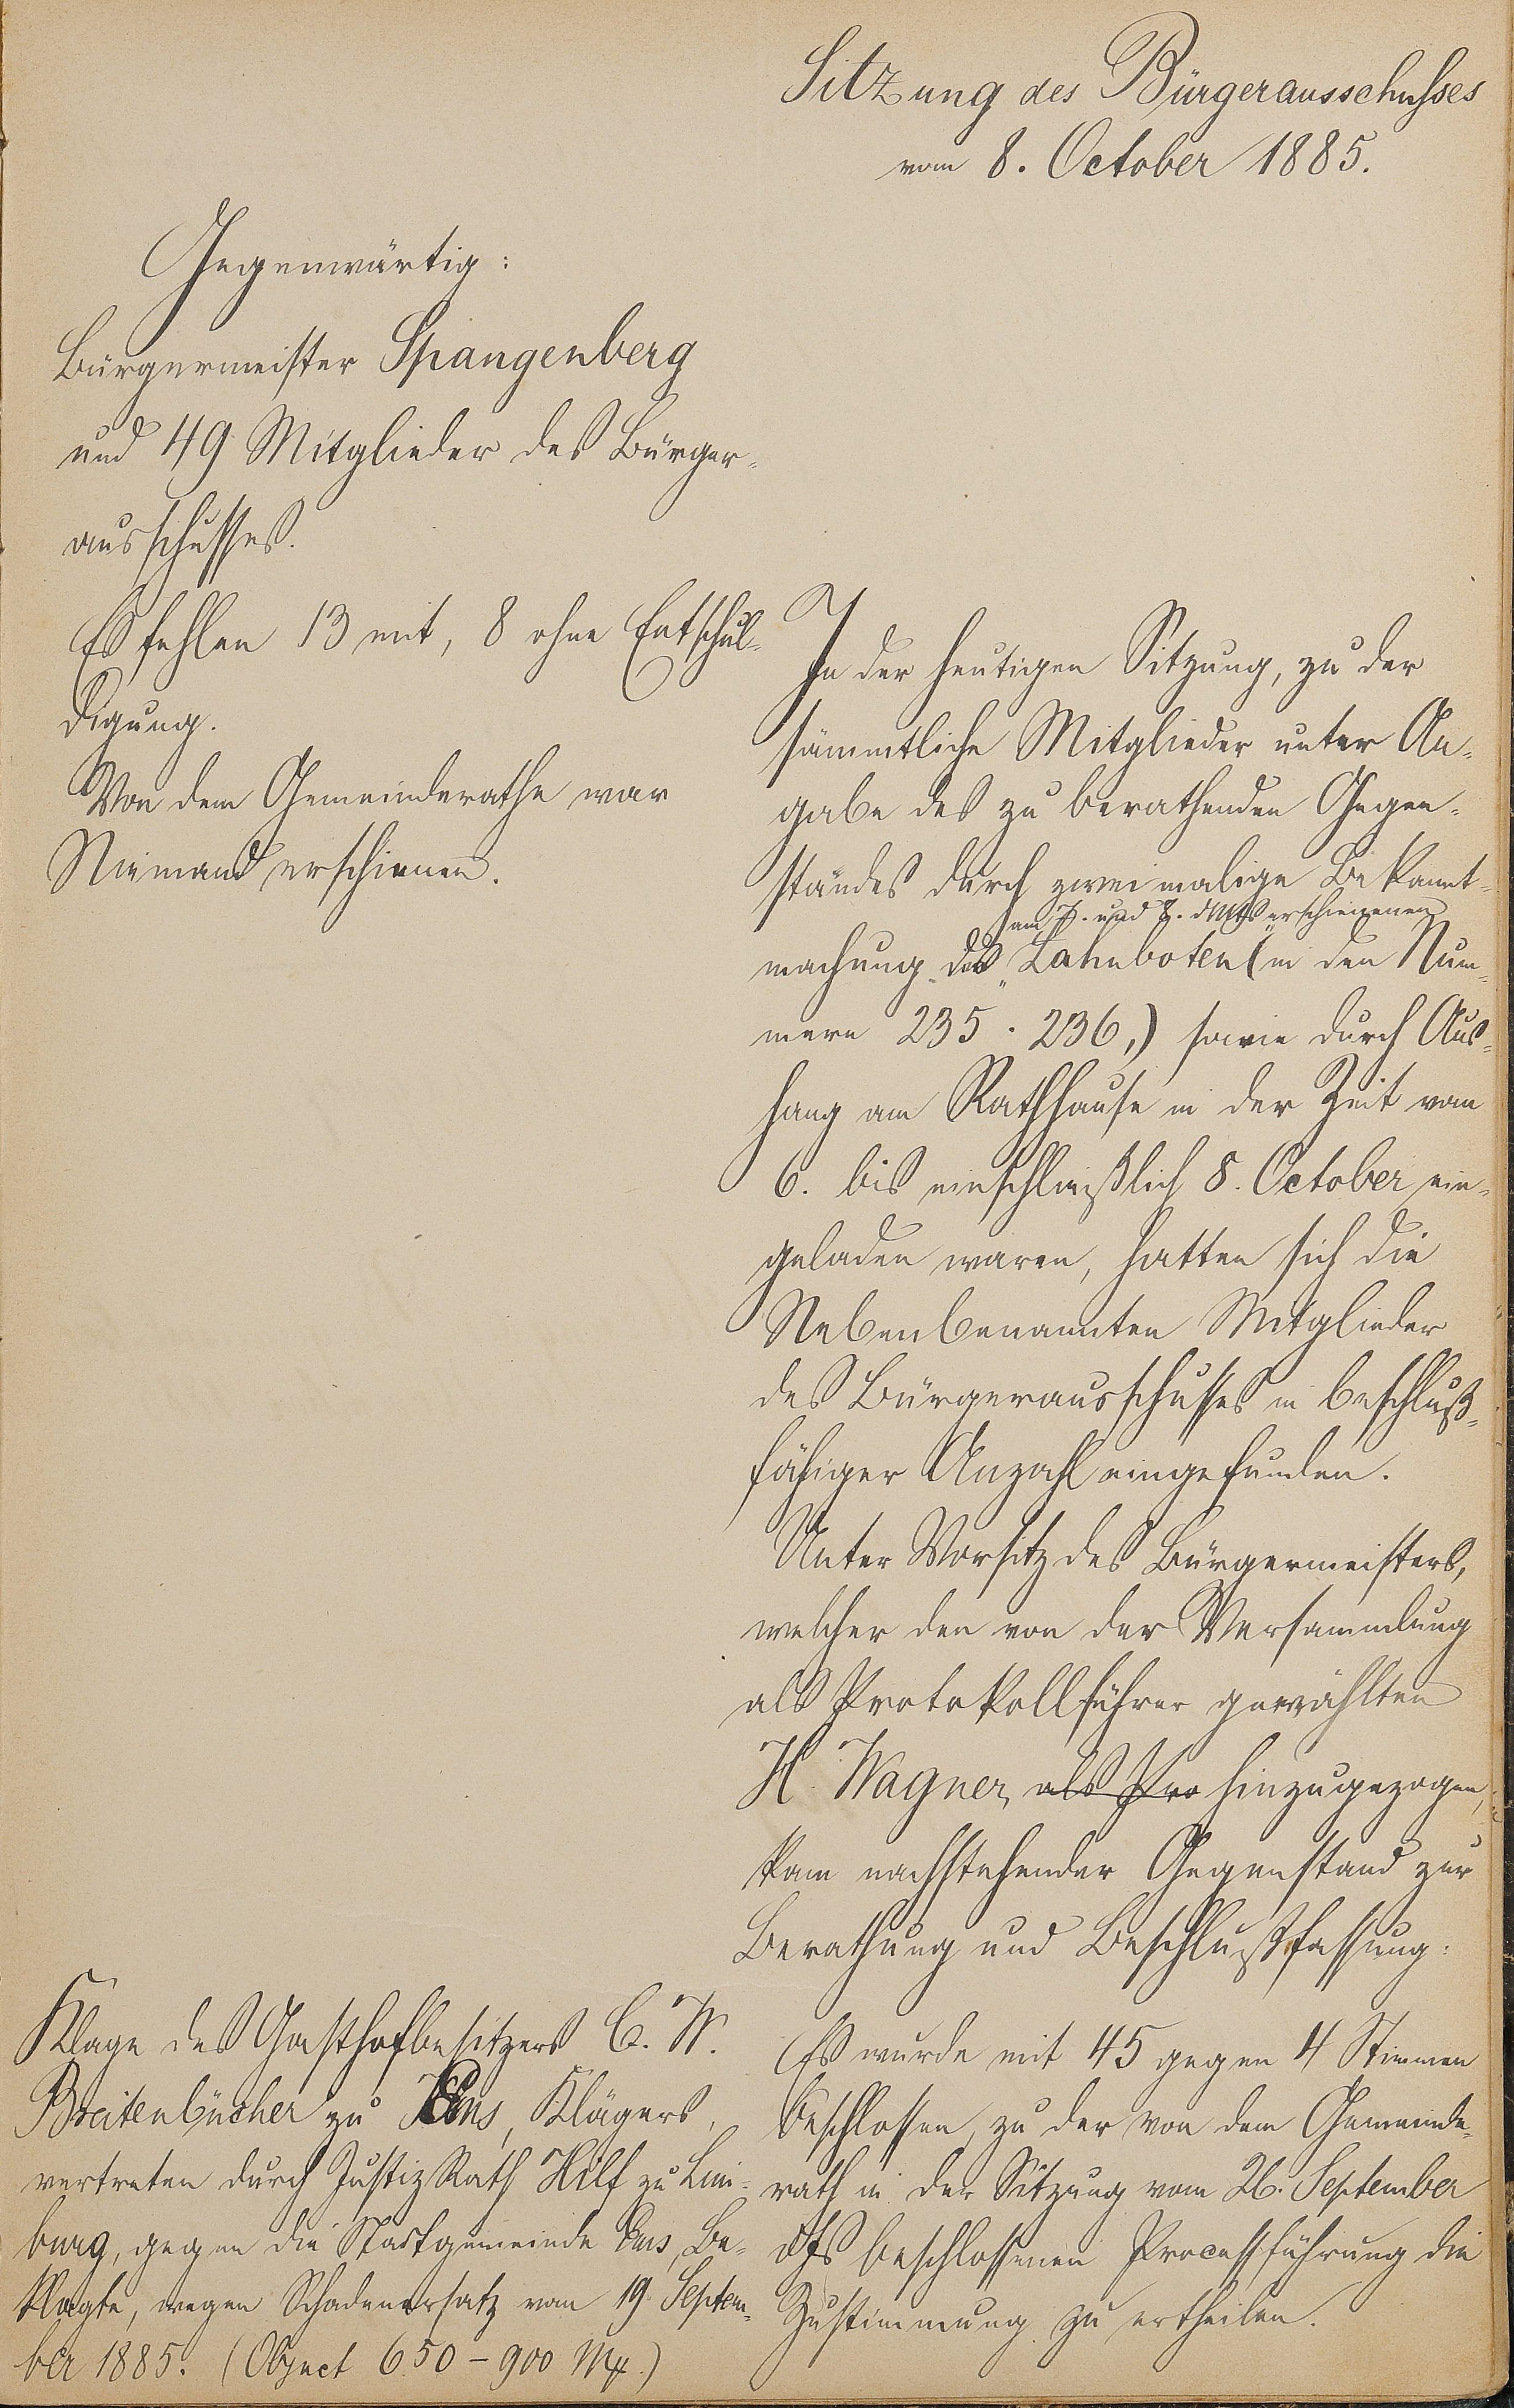 Sitzung des Bürgerausschusses
vom 8. October 1885.
Gegenwärtig:
Bürgermeister Spangenberg
und 49 Mitglieder des Bürger-
ausschusses.
Es fehlen 13 mit, 8 ohne Entschul-
digung.
Von dem Gemeinderathe war
Niemand erschienen.
In der heutigen Sitzung, zu der
sämmtliche Mitglieder unter An-
gabe des zu berathenden Gegen-
standes durch zweimalige Bekannt-
am 7. und 8. dMts erschienenen
machung des „Lahnboten (in den Num-
mern 235 . 236,) sowie durch Aus-
hang am Rathhause in der Zeit vom
6. bis einschließlich 8. October ein-
geladen waren, hatten sich die
Nebenbenannten Mitglieder
des Bürgerausschusses in beschluß-
fähiger Anzahl eingefunden.
Unter Vorsitz des Bürgermeisters,
welcher den von der Versammlung
als Protokollführer gewählten
H. Wagner, als Pro hinzugezogen,
kam nachstehender Gegenstand zur
Berathung und Beschlußfassung:
Klage des Gasthofbesitzers C. W.
Breitenbücher zu Ems, Klägers,
vertreten durch Justiz Rath Hilf zu Lim-
burg, gegen die Stadtgemeinde Ems, Be-
klagte, wegen Schadenersatz vom 19. Septem-
ber 1885. (Object 650 – 900 Mk.)
Es wurde mit 45 gegen 4 Stimmen
beschlossen, zu der von dem Gemeinde-
rath in der Sitzung vom 26. September
dfs beschlossenen Processführung die
Zustimmung zu ertheilen.